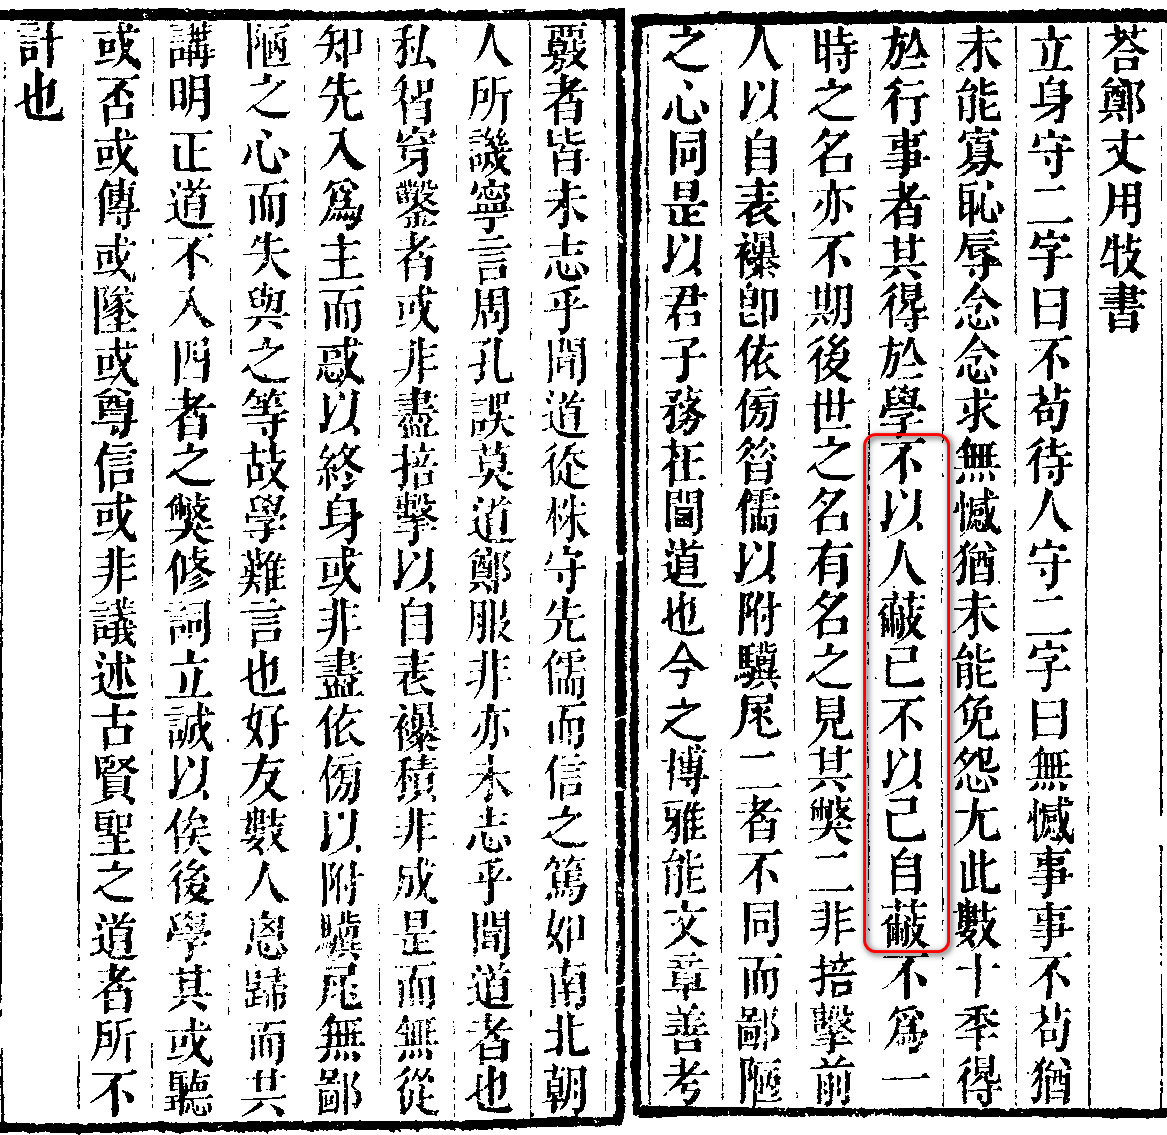 荅鄭丈用牧書
立身守二字曰不苟待人守二字曰無憾事事不苟猶
未能寡恥辱念念求無憾猶未能免怨尤此數十秊得
於行事者其得於學不以人蔽己不以己自蔽不爲一
時之名亦不期後世之名有名之見其獘二非掊擊前
人以自表襮卽依傍昝儒以附驥尾二者不同而鄙陋
之心同是以君子務在聞道也今之博雅能文章善考
覈者皆未志乎聞道從株守先儒而信之篤如南北朝
人所譏寧言周孔誤莫道鄭服非亦未志乎聞道者也
私智穿鑿者或非盡掊擊以自表襮積非成是而無從
知先入爲主而惑以終身或非盡依傍以附驥尾無鄙
陋之心而失與之等故學難言也好友數人思歸而共
講明正道不入四者之獘修詞立誠以俟後學其或聽
或否或傳或墜或尊信或非議述古賢聖之道者所不
計也